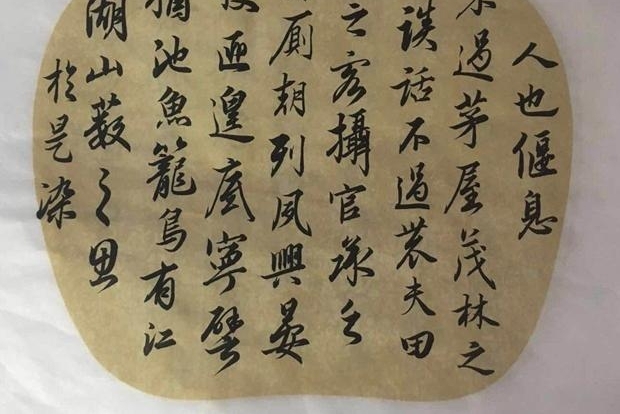 人也偃息
不過茅屋茂林之
談話不過農夫田
之客攝官承乏
廁朝列夙興晏
匪遑底寧譬
猶池魚籠鳥有江
湖山藪之思
於是染